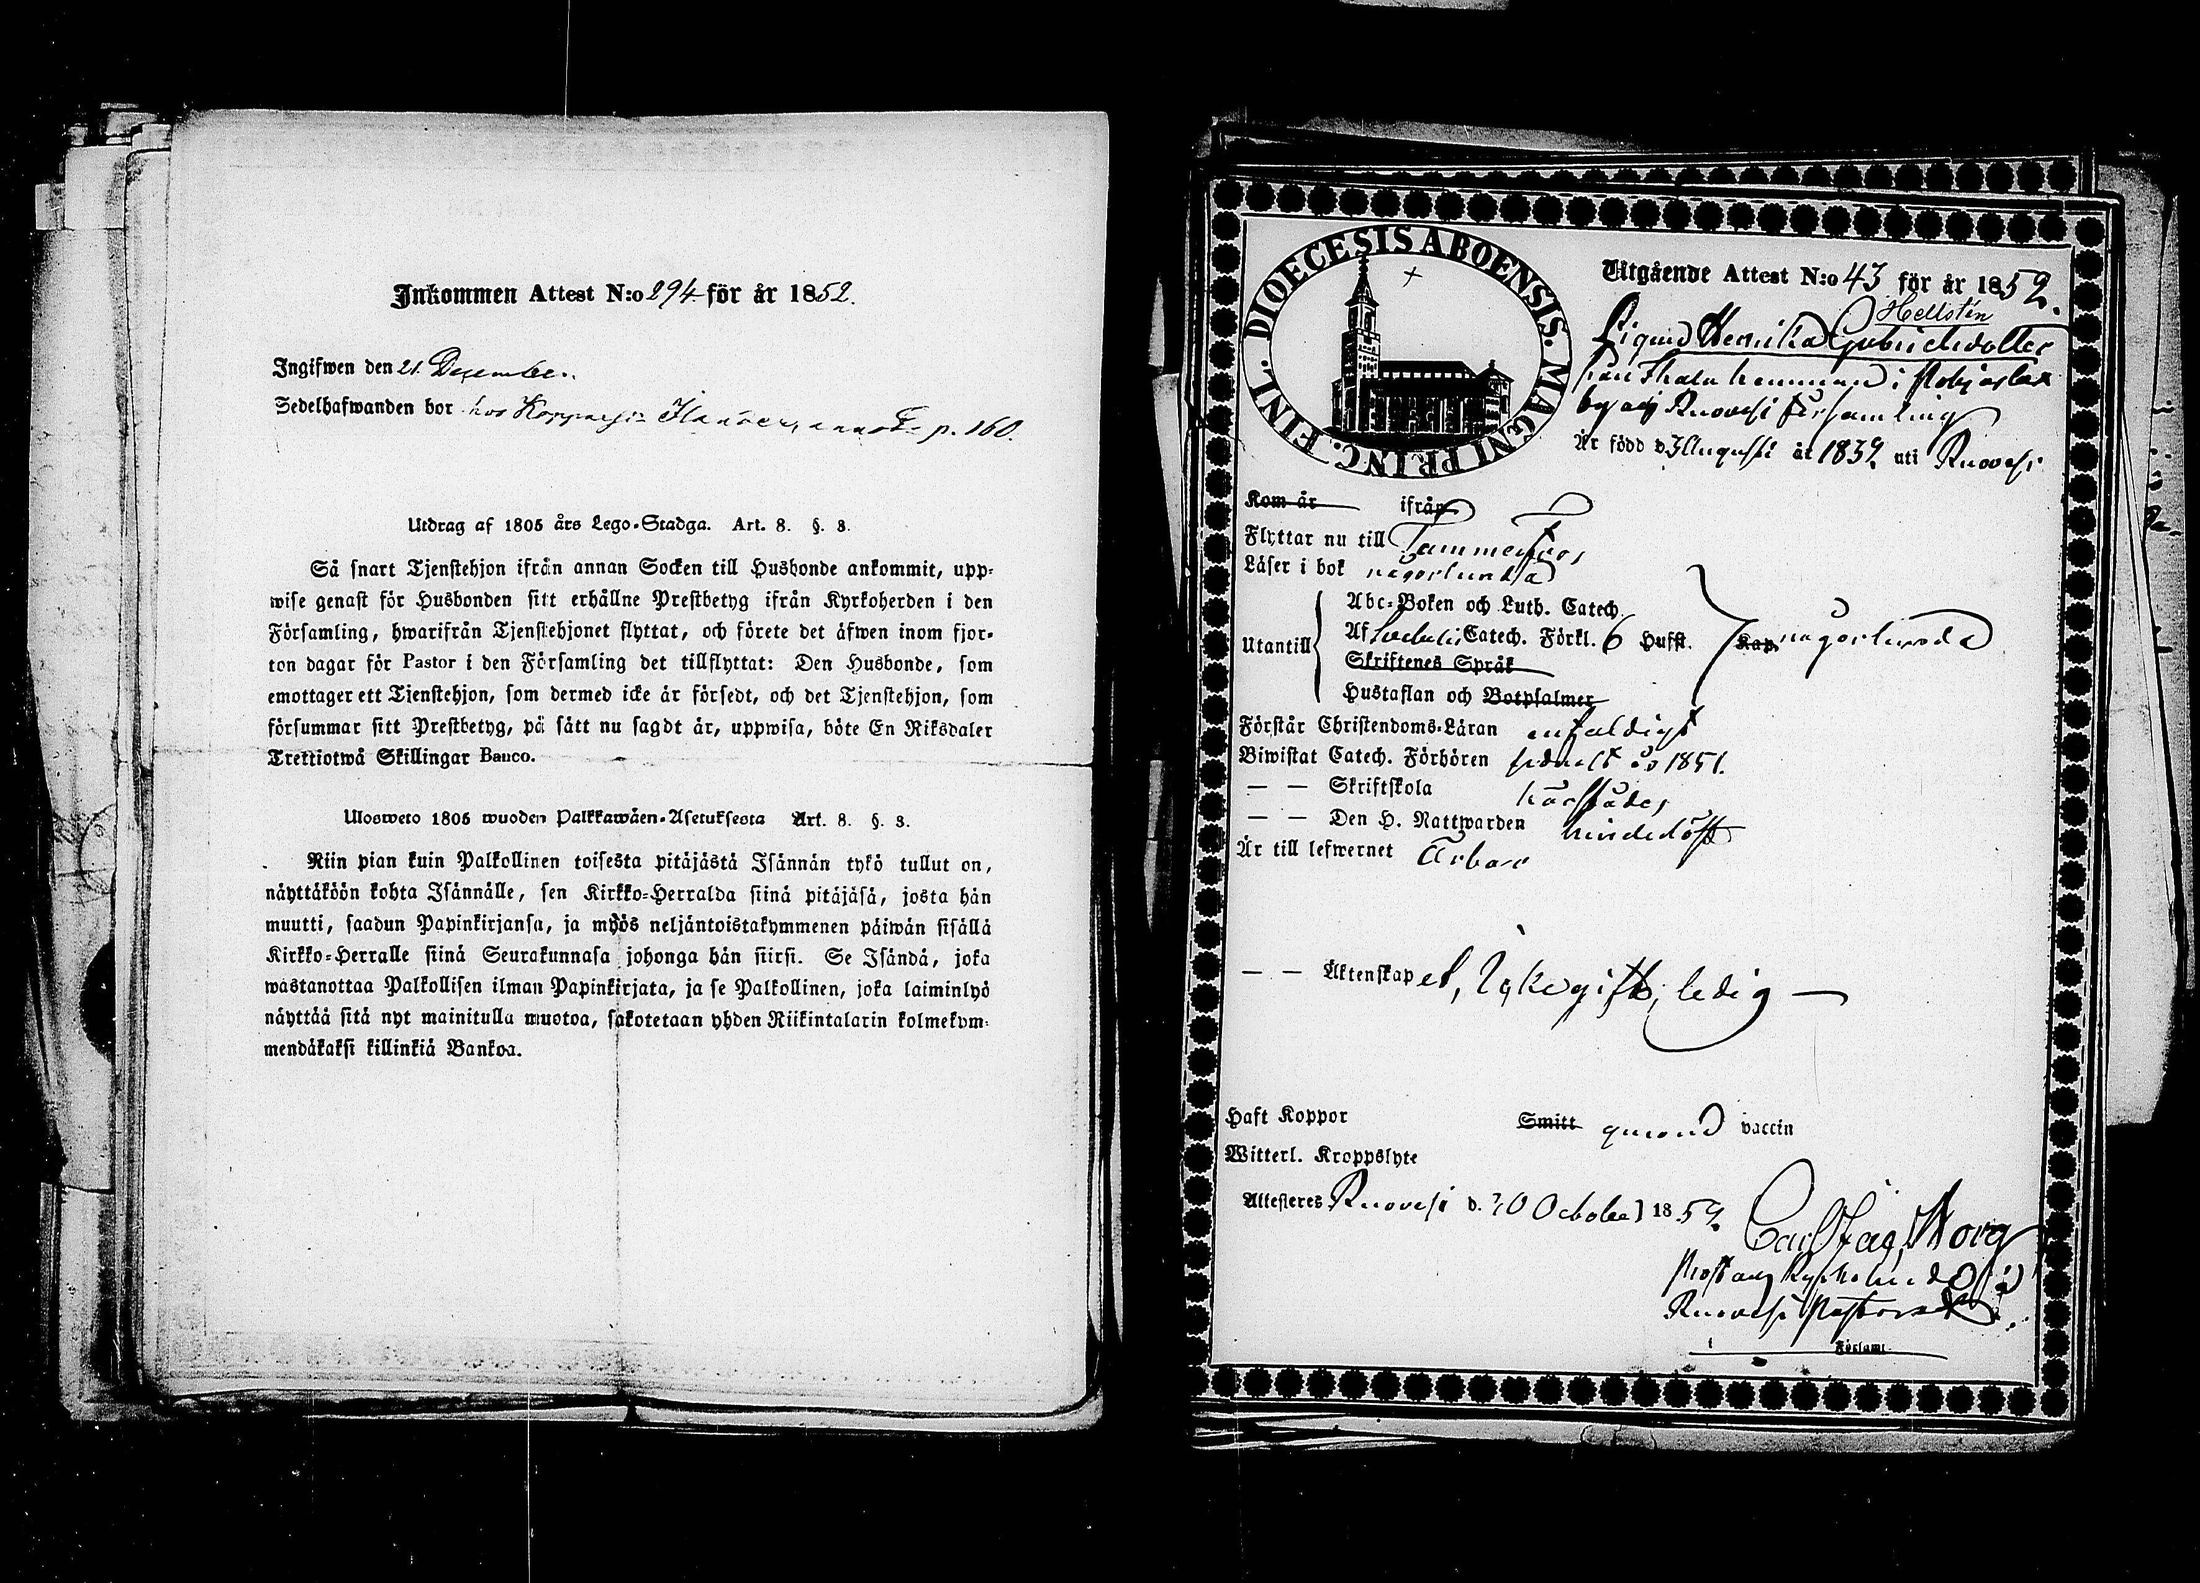 Inkommen Attest N:o 294 för år 1852.
Ingifwen den 21. December.
Sedelhafwanden bor hos p. 160.
Utdrag af 1805 års Lego-Stadga. Art. 8. §. 8.
Så snart Tjenstehjon ifrån annan Socken till Husbonde ankommit, upp-
wise genast för Husbonden sitt erhållne Prestbetyg ifrån Kyrkoherden i den
Församling, hwarifrån Tjenstehjonet flyttat, och förete det äfwen inom fjor-
ton dagar för Pastor i den Församling det tillflyttat: Den Husbonde, som
emottager ett Tjenstehjon, som dermed icke är försedt, och det Tjenstehjon, som
försummar sitt Prestbetyg, på sätt nu sagdt är, uppwisa, böte En Riksdaler
Trettiotwå Skillingar Banco.
Ulosweto 1805 wuoden Palkkawäen-Asetuksesta Art. 8. §. 8.
Niin pian kuin Palkollinen toisesta pitäjästä Isännän tykö tullut on,
näyttäköön kohta Isännälle, sen Kirkko-Herralda siinä pitäjäsä, josta hän
muutti, saadun Papinkirjansa, ja myös neljäntoistakymmenen päiwän sisällä
Kirkko-Herralle siinä Seurakunnasa johonga hän siirsi. Se Isändä, joka
wastanottaa Palkollisen ilman Papinkirjata, ja se Palkollinen, joka laiminlyö
näyttää sitä nyt mainitulla muotoa, sakotetaan yhden Riikintalarin kolmekym-
mendäkaksi killinkiä Bankoa.
DIOECESIS ABOENSIS. MAGNI PRINC. FINL.
Utgående Attest N:o 43 för år 1852.
Hellstén
Pigan Henrika Gabrielsdotter
från hemman i
by af Ruovesi församling
Är född d. 3 Augusti år 1832 uti Ruovesi
Kom år ifrån
Flyttar nu till Tammerfors
Läser i bok någorlunda
Utantill
Abc-Boken och Luth. Catech.
Af Catech. Förkl. 6 Hufst. Kap. någorlunda
Skriftenes Språk
Hustaflan och Botpsalmer
Förstår Christendoms-Läran enfaldigt
Biwistat Catech. Förhören sednast år 1851.
— — Skriftskola härstädes
— — Den H. Nattwarden
Är till lefwernet Ärbar
— — Äktenskapet, ledig —
Haft Koppor Smitt genom vaccin
Witterl. Kroppslyte
Attesteres Ruovesi d. 30 October 1852
Carl Norg
Prost och Kyrkoherde
Ruovesi Pastorat
i Församl.